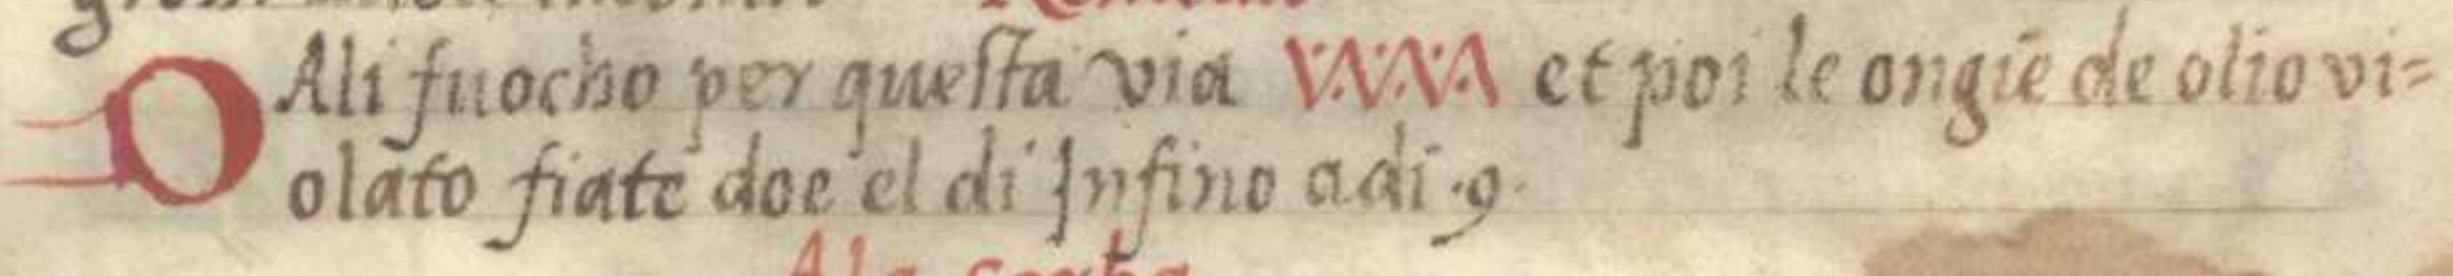 DAli fuocho per questa via et poi le ongie de olio vi=
olato fiate doe el di Infino adi .9.